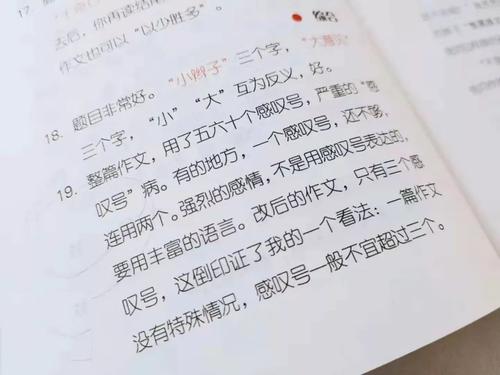 去后，你再读结尾
作文也可以“以少胜多”。
18. 题目非常好。“小辫子”三个字，“大意见”
三个字，“小”“大”互为反义，好。
19. 整篇作文，用了五六十个感叹号，严重的“感
叹号”病。有的地方，一个感叹号，还不够，
连用两个。强烈的感情，不是用感叹号表达的，
要用丰富的语言。改后的作文，只有三个感
叹号，这倒印证了我的一个看法：一篇作文
没有特殊情况，感叹号一般不宜超过三个。